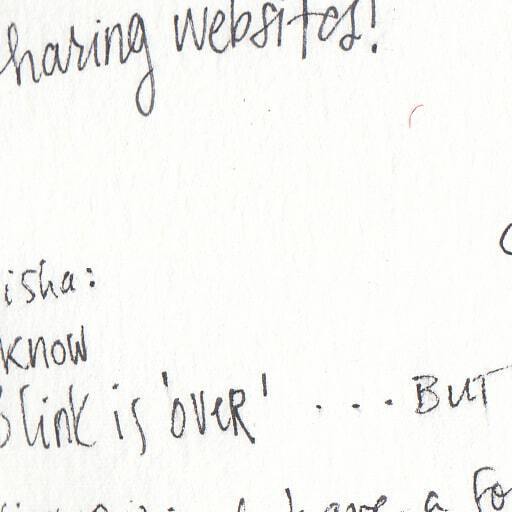 sharing websites!
isha:
know
Blink is 'over' ... BUT
have a fo